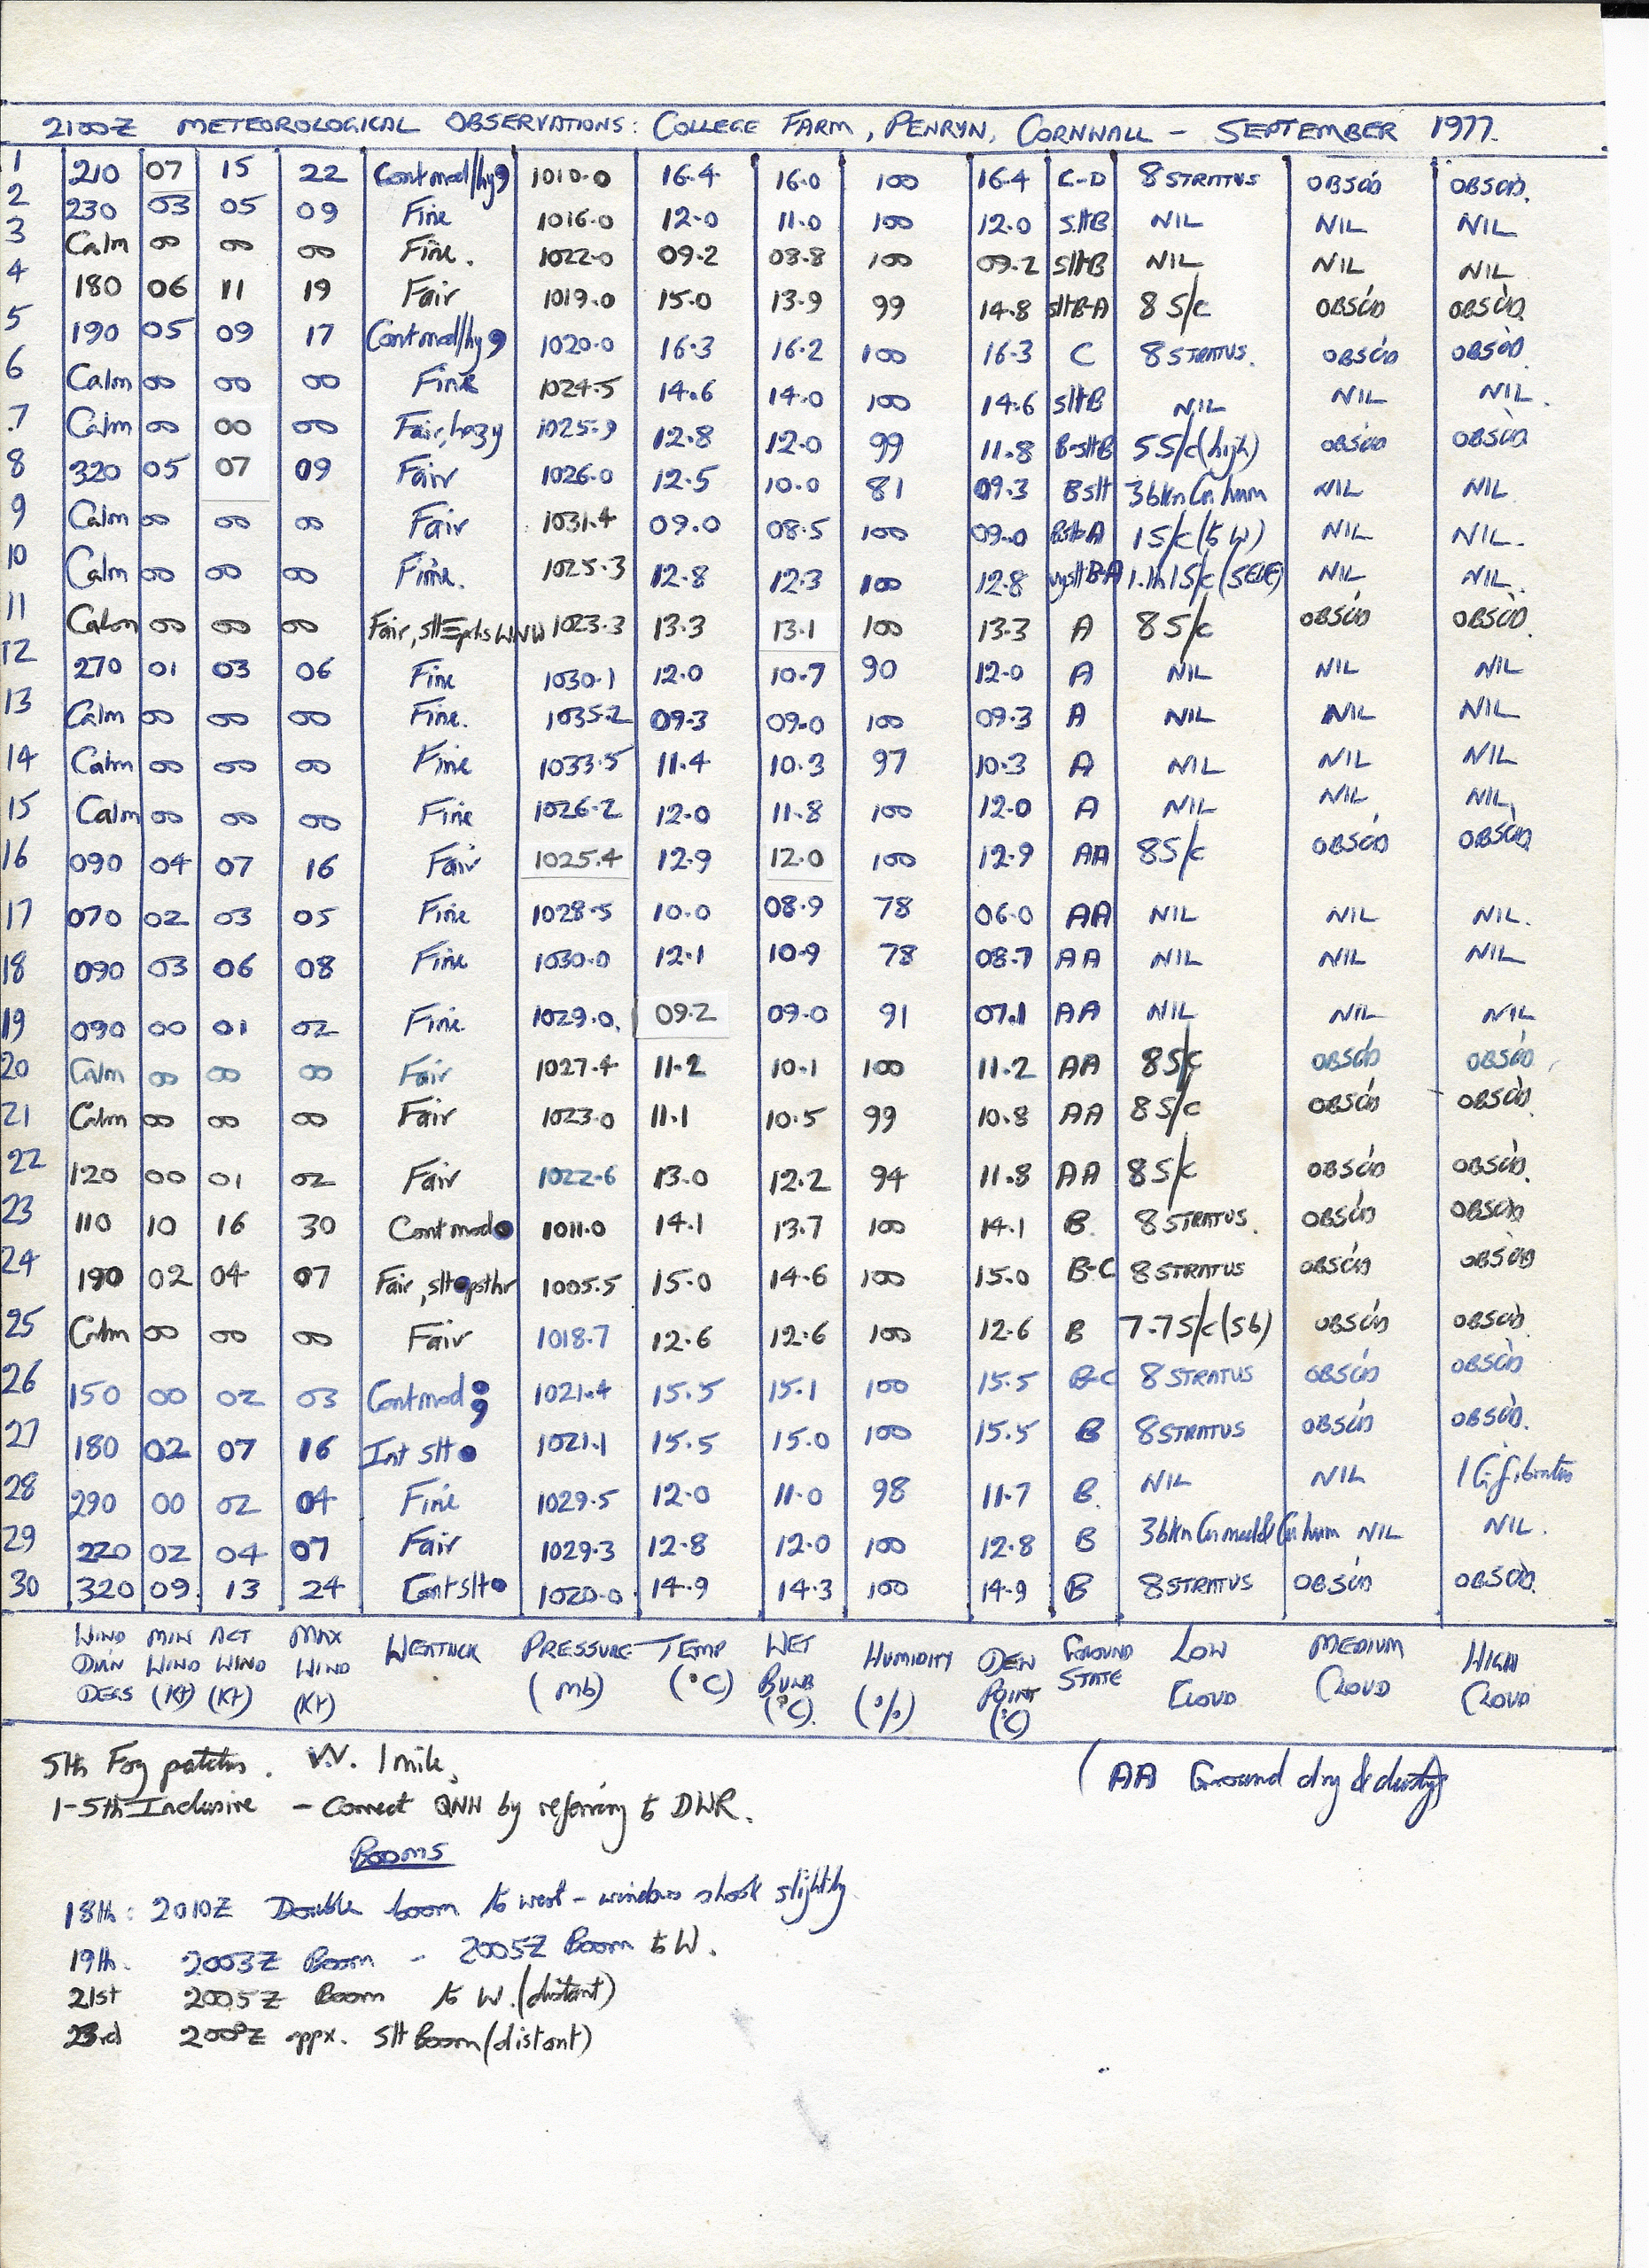 2100Z METEOROLOGICAL OBSERVATIONS: COLLEGE FARM, PENRYN, CORNWALL - SEPTEMBER 1977.
1 210 07 15 22 Cont mod/hy 1010.0 16.4 16.0 100 16.4 C-D 8 STRATUS OBSC'D OBSC'D.
2 230 03 05 09 Fine 1016.0 12.0 11.0 100 12.0 SltB NIL NIL NIL
3 Calm 00 00 00 Fine. 1022.0 09.2 08.8 100 09.2 SltB NIL NIL NIL
4 180 06 11 19 Fair 1019.0 15.0 13.9 99 14.8 sltB-A 8 S/c OBSC'D OBSC'D
5 190 05 09 17 Cont mod/hy 1020.0 16.3 16.2 100 16.3 C 8 STRATUS. OBSC'D OBSC'D
6 Calm 00 00 00 Fine 1024.5 14.6 14.0 100 14.6 sltB NIL NIL NIL.
7 Calm 00 00 00 Fair, hazy 1025.9 12.8 12.0 99 11.8 B-sltB 5 S/c (high) OBSC'D OBSC'D
8 320 05 07 09 Fair 1026.0 12.5 10.0 81 09.3 Bslt 3 bkn Cu hum NIL NIL
9 Calm 00 00 00 Fair 1031.4 09.0 08.5 100 09.0 1 S/c (to W) NIL NIL.
10 Calm 00 00 00 Fine. 1025.3 12.8 12.3 100 12.8 vysltB-A 1.th 1 S/c (SE&E) NIL NIL.
11 Calm 00 00 00 Fair, slt ≡ pchs WNW 1023.3 13.3 13.1 100 13.3 A 8 S/c OBSC'D OBSC'D.
12 270 01 03 06 Fine 1030.1 12.0 10.7 90 12.0 A NIL NIL NIL
13 Calm 00 00 00 Fine. 1035.2 09.3 09.0 100 09.3 A NIL NIL NIL
14 Calm 00 00 00 Fine 1033.5 11.4 10.3 97 10.3 A NIL NIL NIL
15 Calm 00 00 00 Fine 1026.2 12.0 11.8 100 12.0 A NIL NIL NIL
16 090 04 07 16 Fair 1025.4 12.9 12.0 100 12.9 AA 8 S/c OBSC'D OBSC'D
17 070 02 03 05 Fine 1028.5 10.0 08.9 78 06.0 AA NIL NIL NIL.
18 090 03 06 08 Fine 1030.0 12.1 10.9 78 08.7 AA NIL NIL NIL
19 090 00 01 02 Fine 1029.0. 09.2 09.0 91 07.1 AA NIL NIL NIL
20 Calm 00 00 00 Fair 1027.4 11.2 10.1 100 11.2 AA 8 S/c OBSC'D OBSC'D
21 Calm 00 00 00 Fair 1023.0 11.1 10.5 99 10.8 AA 8 S/c OBSC'D OBSC'D.
22 120 00 01 02 Fair 1022.6 13.0 12.2 94 11.8 AA 8 S/c OBSC'D OBSC'D.
23 110 10 16 30 Cont mod ● 1011.0 14.1 13.7 100 14.1 B. 8 STRATUS. OBSC'D OBSC'D
24 190 02 04 07 Fair, slt ● psthr 1005.5 15.0 14.6 100 15.0 B-C 8 STRATUS OBSC'D OBSC'D
25 Calm 00 00 00 Fair 1018.7 12.6 12.6 100 12.6 B 7.7 S/c (Sb) OBSC'D OBSC'D.
26 150 00 02 03 Cont mod 1021.4 15.5 15.1 100 15.5 B-C 8 STRATUS OBSC'D OBSC'D
27 180 02 07 16 Int slt ● 1021.1 15.5 15.0 100 15.5 B 8 STRATUS OBSC'D OBSC'D.
28 290 00 02 04 Fine 1029.5 12.0 11.0 98 11.7 B. NIL NIL 1 Ci fibratus
29 220 02 04 07 Fair 1029.3 12.8 12.0 100 12.8 B 3 bkn Cu med & Cu hum NIL NIL.
30 320 09 13 24 Cont slt ● 1020.0 14.9 14.3 100 14.9 B 8 STRATUS OBSC'D OBSC'D.
WIND DIR'N DEGS MIN WIND (Kt) ACT WIND (Kt) MAX WIND (Kt) WEATHER PRESSURE (mb) TEMP (°C) WET BULB (°C). HUMIDITY (%) DEW POINT (°C) GROUND STATE LOW CLOUD MEDIUM CLOUD HIGH CLOUD
5th Fog patches. V.V. 1 mile. (AA Ground dry & dusty)
1-5th Inclusive - Correct QNH by referring to DWR.
BOOMS
18th: 2010Z Double boom to west - windows shook slightly
19th. 2003Z Boom - 2005Z Boom to W.
21st 2005Z Boom to W. (distant)
23rd 2000Z appx. Slt Boom (distant)